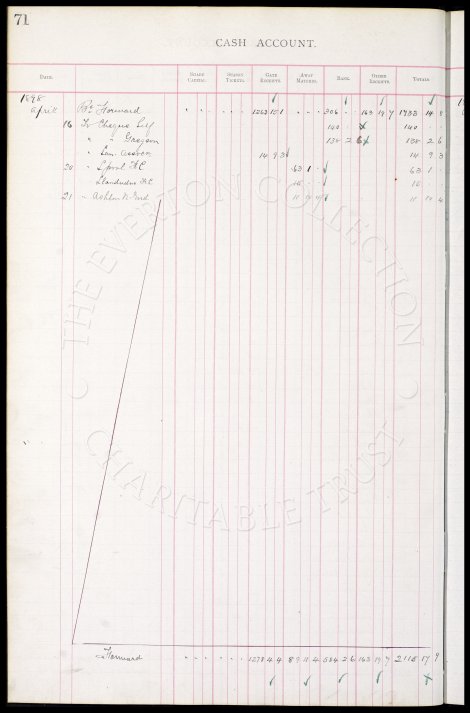 71
CASH ACCOUNT.
DATE. SHARE CAPITAL. SEASON TICKETS. GATE RECEIPTS. AWAY MATCHES. BANK. OTHER RECEIPTS. TOTALS.
1898
April Bt Forward 1263 10 1 306 163 19 7 1733 14 8
16 To Cheque Self 140 140
" " Gregson 138 2 6 138 2 6
" 14 9 3 14 9 3
20 " L'pool F.C. 63 1 63 1
" Llandudno F.C. 10 10
21 " Ashton N. End 11
Forward 1278 4 4 89 11 4 584 2 6 163 19 7 2115 17 9
THE EVERTON COLLECTION
CHARITABLE TRUST